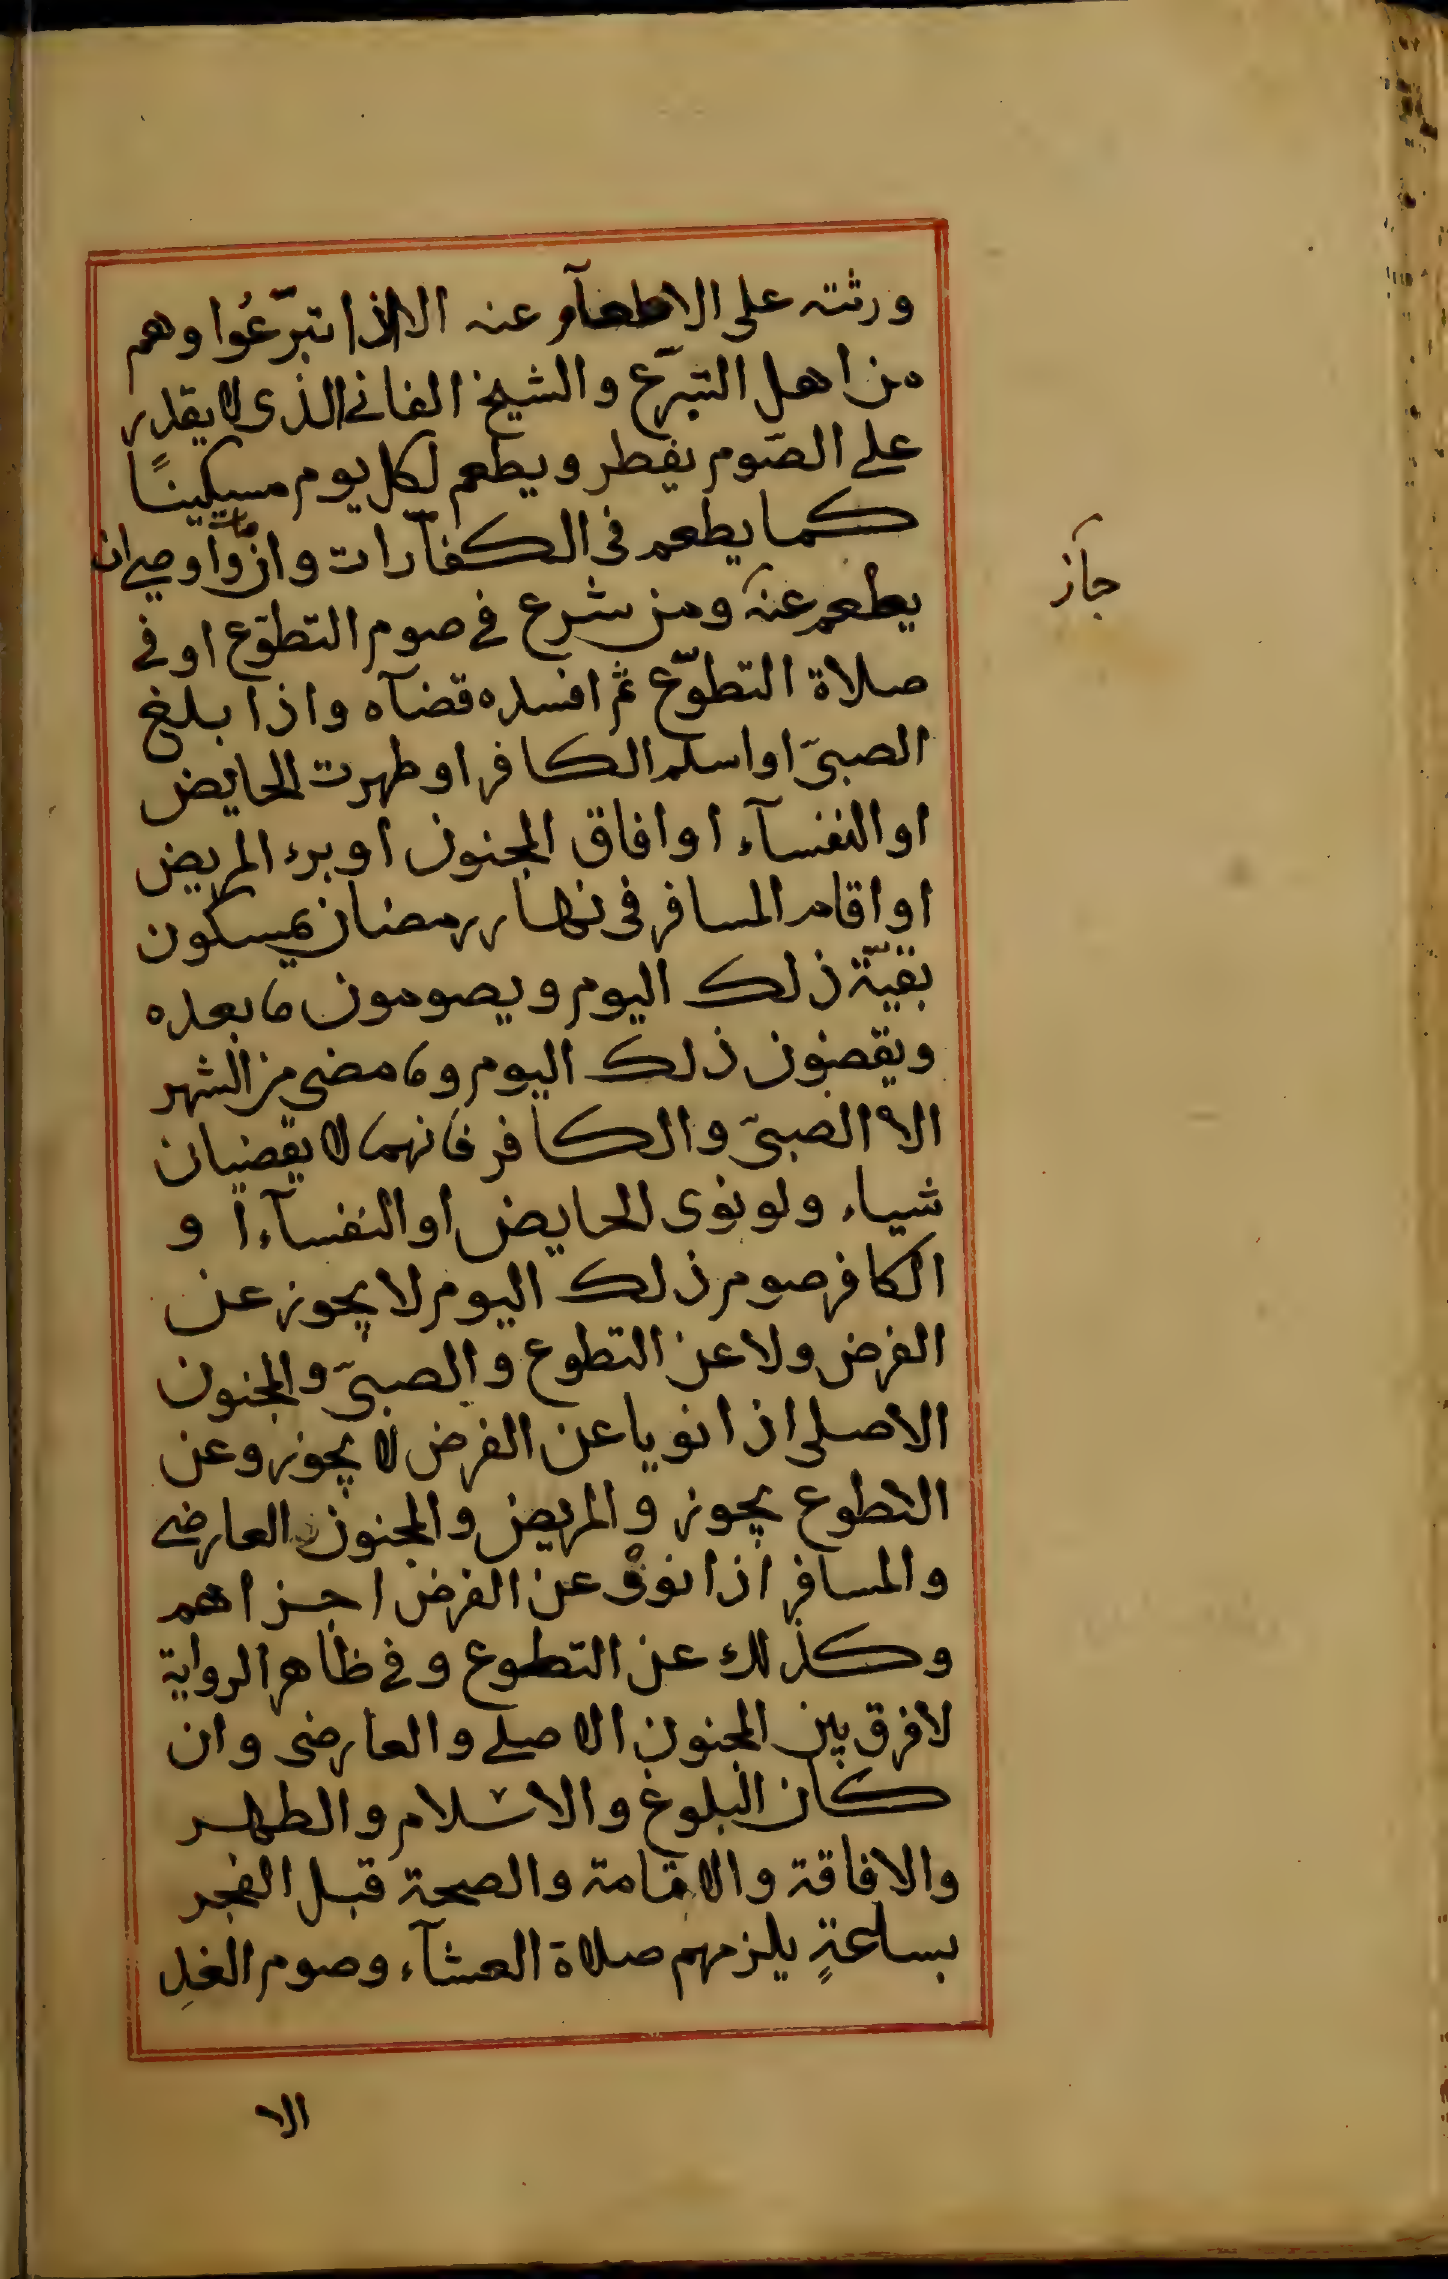 ورثته على الاطعآم عنه الا اذا تبرّعُوا وهم
من اهل التبرّع والشيخ الفانى الذى لا يقدر
على الصّوم يفطر ويطعم لكل يوم مسكينًا
كما يطعم فى الكفآرات وان مات واوصى ان
يطعم عنه ومن شرع فى صوم التطوّع او فى
صلاة التطوّع ثم افسده قضآه واذا بلغ
الصبىّ او اسلم الكافر او طهرت الحايض
او النفسآء او افاق المجنون او برء المريض
او اقام المسافر فى نهار رمضان يمسكون
بقيّة ذلك اليوم ويصومون ما بعده
ويقضون ذلك اليوم وما مضى من الشهر
الا الصبىّ والكافر فانهما لا يقضيان
شياء ولو نوى الحايض او النفسآء او
الكافر صوم ذلك اليوم لا يجوز عن
الفرض ولا عن التطوع والصبىّ والمجنون
الاصلى اذا نويا عن الفرض لا يجوز وعن
التطوع يجوز والمريض والمجنون العارضى
والمسافر اذا نووا عن الفرض اجزاهم
وكذلك عن التطوع وفى ظاهر الرواية
لا فرق بين المجنون الاصلى والعارضى وان
كان البلوغ والاسلام والطهر
والافاقة والاقامة والصحة قبل الفجر
بساعةٍ يلزمهم صلاة العشآء وصوم الغدِ
الا
جاز